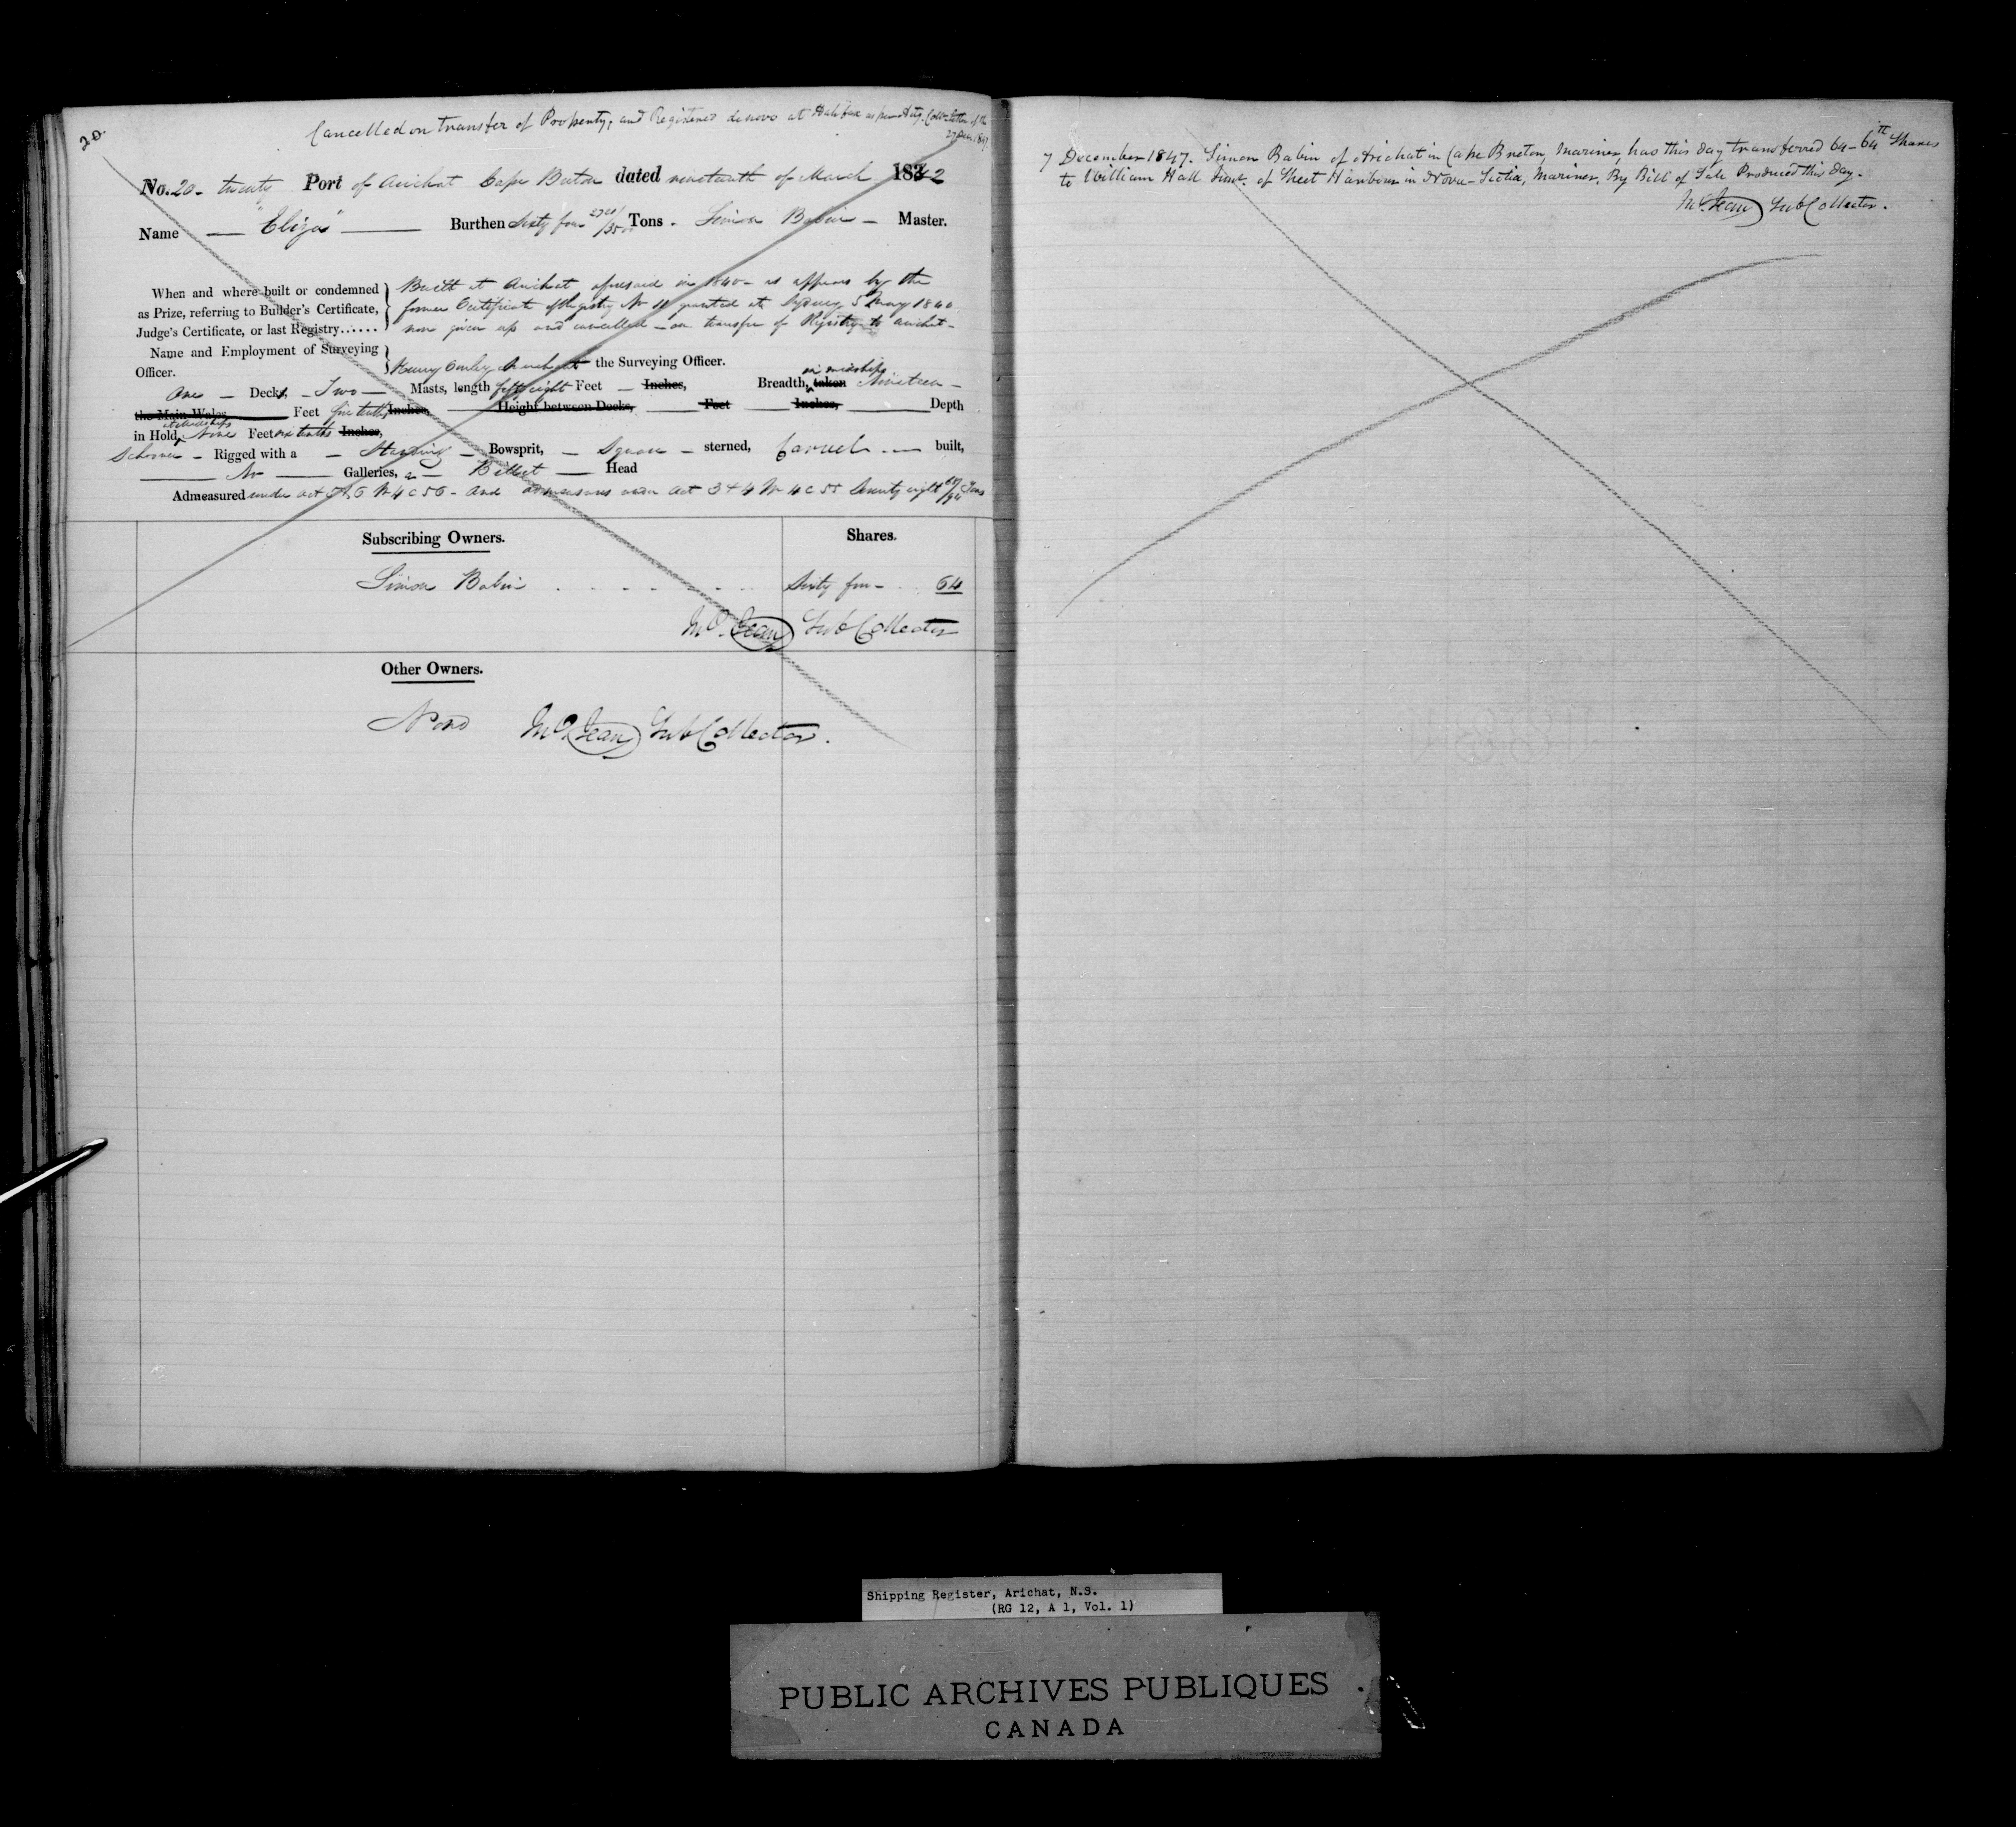 20.
Cancelled on transfer of Property, and Registered denovo at Halifax as per Colls Letter of the
27 Decr 1847.
No. 20 - twenty Port of Arichat Cape Breton dated nineteenth of March 1842
Name — "Eliza" — Burthen Sixty four 2721/3500 Tons. Simon Babin — Master.
When and where built or condemned
as Prize, referring to Builder's Certificate,
Judge's Certificate, or last Registry......
Built at Arichat aforesaid in 1840 - as appears by the
former Certificate of Registry No 11 granted at Sydney 5 May 1840
now given up and cancelled - on transfer of Registry to Arichat -
Name and Employment of Surveying
Officer.
Henry Merchant the Surveying Officer.
One — Decks, — Two — Masts, length fifty eight Feet — Inches, Breadth, taken in midships Nineteen —
the Main Wales Feet five tenths Inches, Height between Decks, Feet Inches, Depth
in Hold, at Midships Nine Feet six tenths Inches,
Schooner — Rigged with a — Standing — Bowsprit, — Square — sterned, Carvel — built,
— No — Galleries, a — Billet — Head
Admeasured under act 5 & 6 W 4 c 56 - And admeasures under Act 3 & 4 W 4 c 55 Seventy eight 69/94 Tons
Subscribing Owners. Shares.
Simon Babin . . . . . . . Sixty four - . . 64
McJean Sub Collector
Other Owners.
None McJean Sub Collector.
7 December 1847. Simon Babin of Arichat in Cape Breton, Mariner, has this day transferred 64-64th Shares
to William Hall Junr. of Sheet Harbour in Nova-Scotia, Mariner, By Bill of Sale Produced this day.
McJean Sub Collector.
Shipping Register, Arichat, N.S.
(RG 12, A 1, Vol. 1)
PUBLIC ARCHIVES PUBLIQUES
CANADA